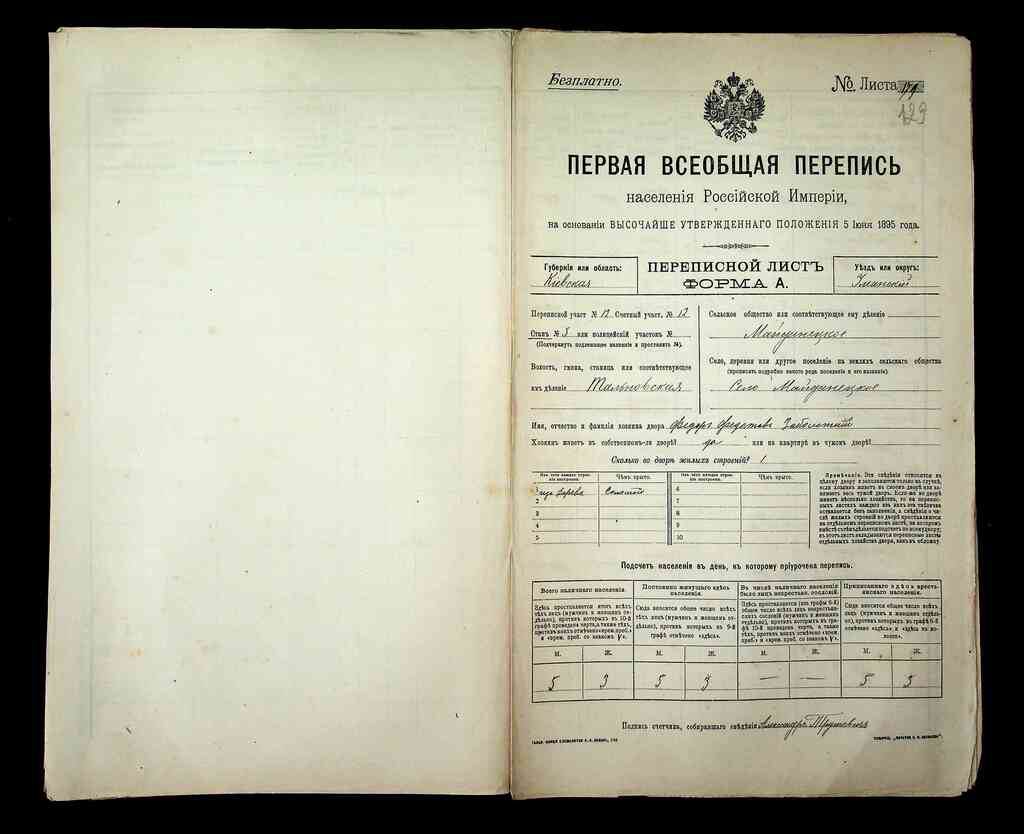 Безплатно.
№ Листа
129
ПЕРВАЯ ВСЕОБЩАЯ ПЕРЕПИСЬ
населенія Россійской Имперіи,
на основаніи ВЫСОЧАЙШЕ УТВЕРЖДЕННАГО ПОЛОЖЕНІЯ 5 Іюня 1895 года.
Губернія или область:
Кіевская
ПЕРЕПИСНОЙ ЛИСТЪ
ФОРМА А.
Уѣздъ или округъ:
Уманскій
Переписной участ. № 12 Счетный участ. № 12
Станъ № 5 или полицейскій участокъ №
(Подчеркнуть подлежащее названіе и проставить №).
Волость, гмина, станица или соотвѣтствующее
имъ дѣленіе Тальновская
Сельское общество или соотвѣтствующее ему дѣленіе
Майданецкое
Село, деревня или другое поселеніе на земляхъ сельскаго общества
(прописать подробно какого рода поселеніе и его названіе).
Село Майданецкое
Имя, отчество и фамилія хозяина двора Федоръ Заболотній
Хозяинъ живетъ въ собственномъ-ли дворѣ? да или на квартирѣ въ чужомъ дворѣ?
Сколько во дворѣ жилыхъ строеній? 1
Изъ чего каждое строеніе построено.
Чѣмъ крыто.
Изъ чего каждое строеніе построено.
Чѣмъ крыто.
1 изъ дерева
6
2
7
3
8
4
9
5
10
Примѣчаніе. Эти свѣдѣнія относятся къ
цѣлому двору и заполняются только въ случаѣ,
если хозяинъ живетъ въ своемъ дворѣ или занимаетъ
весь чужой дворъ. Если-же во дворѣ
живетъ нѣсколько хозяйствъ, то на переписныхъ
листахъ каждаго изъ нихъ эта табличка
оставляется безъ заполненія, а свѣдѣнія о числѣ
жилыхъ строеній во дворѣ проставляются
на отдѣльномъ переписномъ листѣ, на которомъ
вмѣстѣ съ тѣмъ дѣлается подсчетъ по всему двору;
въ этотъ листъ вкладываются переписные листы
отдѣльныхъ хозяйствъ двора, какъ въ обложку.
Подсчетъ населенія въ день, къ которому пріурочена перепись.
Всего наличнаго населенія.
Здѣсь проставляется итогъ всѣхъ
тѣхъ лицъ (мужчинъ и женщинъ отдѣльно),
противъ которыхъ въ 10-й
графѣ проведена черта, а также тѣхъ,
противъ коихъ отмѣчено «врем. проб.»
и «врем. проб. со знакомъ V».
Постоянно живущаго здѣсь
населенія.
Сюда вносится общее число всѣхъ
тѣхъ лицъ (мужчинъ и женщинъ отдѣльно),
противъ которыхъ въ 9-й
графѣ отмѣчено «здѣсь».
Въ числѣ наличнаго населенія
было лицъ некрестьян. сословій.
Здѣсь проставляется (изъ графы 6-й)
общее число всѣхъ лицъ некрестьянскихъ
сословій (мужчинъ и женщинъ
отдѣльно), противъ которыхъ въ графѣ
10-й проведена черта, а также
тѣхъ, противъ коихъ отмѣчено «врем.
проб.» и «врем. проб. со знакомъ V».
Приписаннаго здѣсь крестьянскаго
населенія.
Сюда вносится общее число всѣхъ
тѣхъ лицъ (мужчинъ и женщинъ отдѣльно),
противъ которыхъ въ графѣ 8-й
отмѣчено «здѣсь» и «здѣсь въ волости».
М. Ж. М. Ж. М. Ж. М. Ж.
5 3 5 3 — — 5 3
Подпись счетчика, собиравшаго свѣдѣнія Александръ